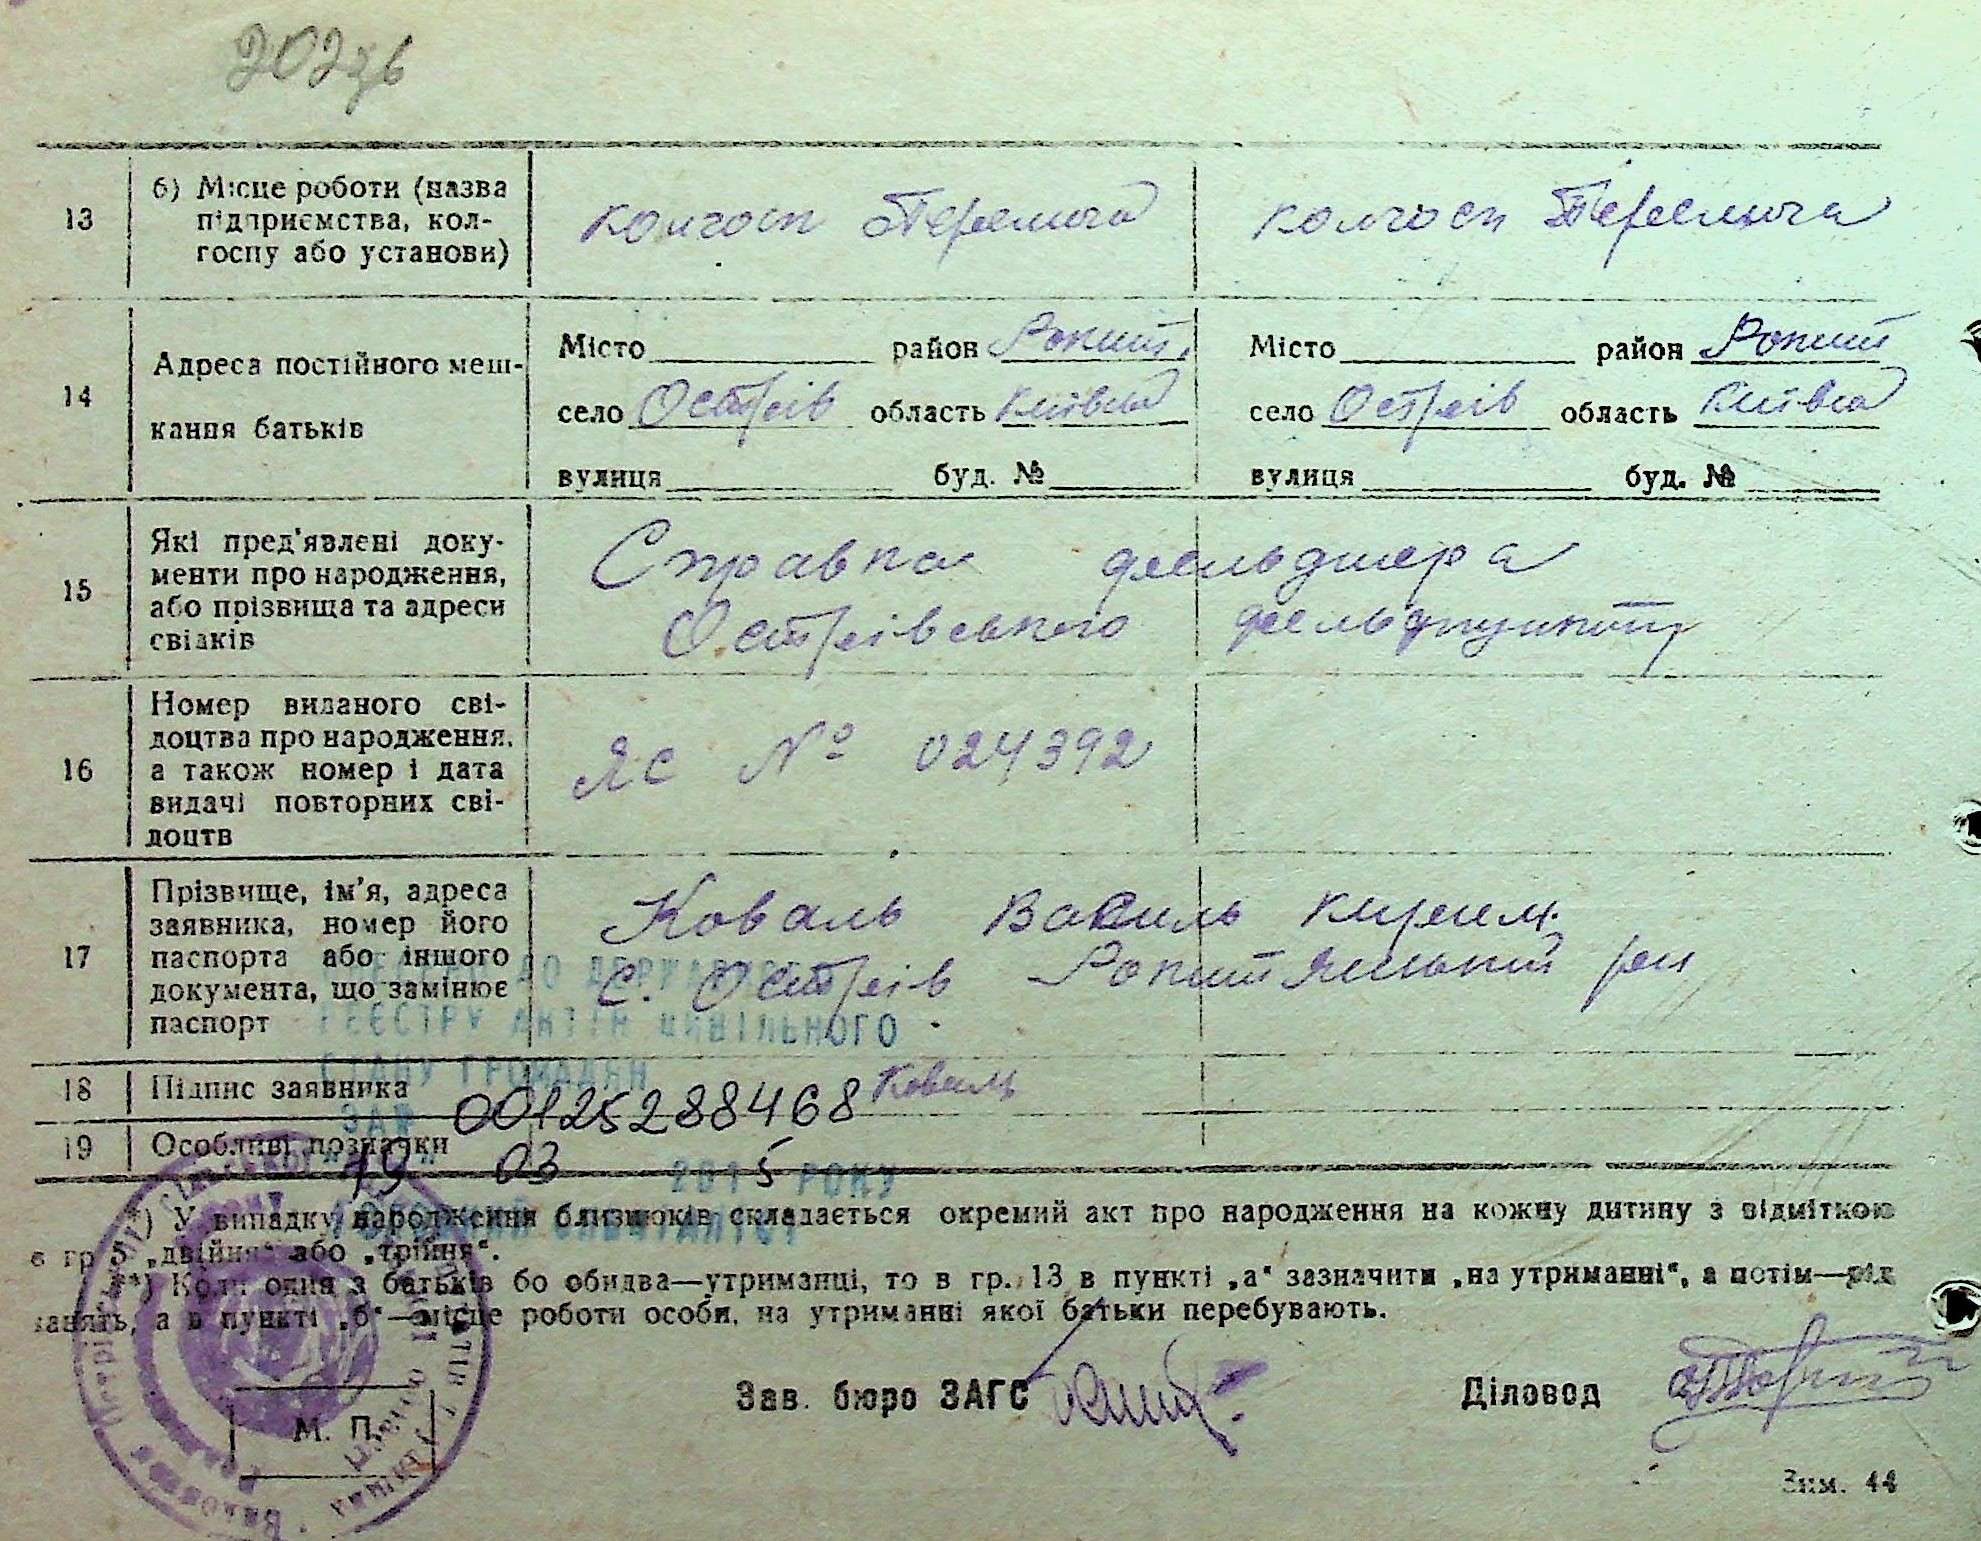 202зв
13
б) Місце роботи (назва
підприємства, кол-
госпу або установи)
колгосп Перемога
колгосп Перемога
14
Адреса постійного меш-
кання батьків
Місто район Рокит.
село Острів область Київська
вулиця буд. №
Місто район Рокит
село Острів область Київська
вулиця буд. №
15
Які пред'явлені доку-
менти про народження,
або прізвища та адреси
свідків
Справка фельдшера
Острівського фельдпункту
16
Номер виданого сві-
доцтва про народження,
а також номер і дата
видачі повторних сві-
доцтв
ЯС № 024392
17
Прізвище, ім'я, адреса
заявника, номер його
паспорта або іншого
документа, що замінює
паспорт
Коваль Василь Кирим.
с. Острів Рокитянський р-н
ДО ДЕРЖАВНОГО
РЕЄСТРУ АКТІВ ЦИВІЛЬНОГО
СТАНУ ГРОМАДЯН
18
Підпис заявника
Коваль
ЗА № 00125288468
19
Особливі позначки
"19" 03 2015 РОКУ
ГОЛОВНИЙ СПЕЦІАЛІСТ
*) У випадку народження близнюків складається окремий акт про народження на кожну дитину з відміткою
в гр 5 „двійня“ або „трійня“.
**) Коли одна з батьків бо обидва—утриманці, то в гр. 13 в пункті „а“ зазначити „на утриманні“, а потім—рід
занять, а в пункті „б“—місце роботи особи, на утриманні якої батьки перебувають.
М. П.
Зав. бюро ЗАГС
Діловод
Зим. 44